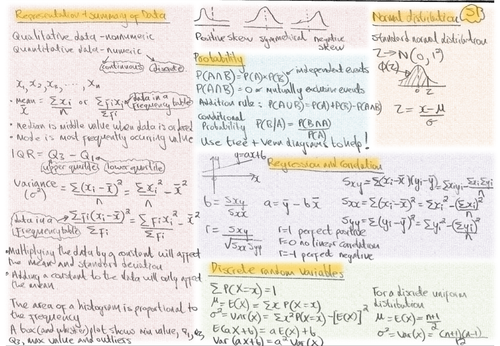 Representation + summary of Data
Qualitative data - nonnumeric
Quantitative data - numeric
continuous Discrete
x₁, x₂, x₃, ... xₙ
• mean = Σxᵢ/n or Σfᵢxᵢ/Σfᵢ data in a frequency table
x̄
• median is middle value when data is ordered
• Mode is most frequently occuring value
IQR = Q₃ - Q₁
upper quartile lower quartile
Variance = Σ(xᵢ-x̄)²/n = Σxᵢ²/n - x̄²
(σ²)
data in a frequency table Σfᵢ(xᵢ-x̄)²/Σfᵢ = Σfᵢxᵢ²/Σfᵢ - x̄²
• Multiplying the data by a constant will affect
the mean and standard deviation
• Adding a constant to the data will only affect
the mean
The area of a histogram is proportional to
the frequency
A box (and whisker) plot shows min value, Q₁, Q₂,
Q₃, max value and outliers
Positive skew symmetrical negative
skew
Probability
P(A∩B) = P(A)×P(B) independent events
P(A∩B) = 0 mutually exclusive events
Addition rule: P(A∪B) = P(A)+P(B)-P(A∩B)
conditional
Probability P(B/A) = P(B∩A)/P(A)
Use tree + venn diagrams to help!
Normal distribution S1
Standard normal distribution
Z → N(0, 1²)
Φ(z)
Z = x-μ/σ
Regression and Correlation
y=ax+b
x
b = Sxy/Sxx a = ȳ - bx̄
r = Sxy/√Sxx Syy
r=1 perfect positive
r=0 no linear correlation
r=-1 perfect negative
Sxy = Σ(xᵢ-x̄)(yᵢ-ȳ) = Σxᵢyᵢ - ΣxᵢΣyᵢ/n
Sxx = Σ(xᵢ-x̄)² = Σxᵢ² - (Σxᵢ)²/n
Syy = Σ(yᵢ-ȳ)² = Σyᵢ² - (Σyᵢ)²/n
Discrete random Variables
ΣP(X=x) = 1
μ = E(X) = Σx P(X=x)
σ² = Var(X) = Σx²P(X=x) - [E(X)]²
E(aX+b) = aE(X)+b
Var(aX+b) = a²Var(X)
For a discrete uniform
distribution
μ = E(X) = n+1/2
σ² = Var(X) = (n+1)(n-1)/12